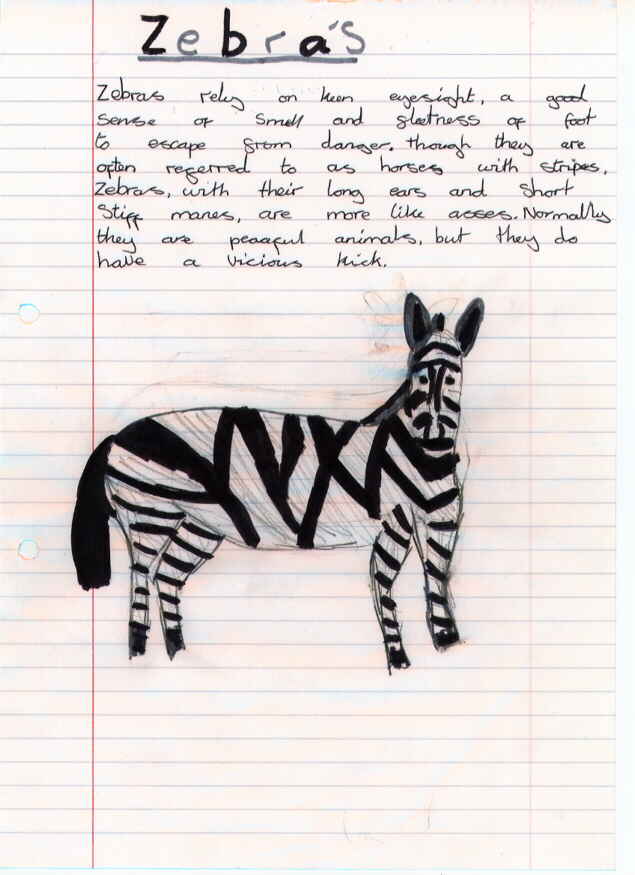 Zebra's
Zebras rely on keen eyesight, a good
sense of smell and fleetness of foot
to escape from danger. Though they are
often referred to as horses with stripes,
Zebras, with their long ears and short
stiff manes, are more like asses. Normally
they are peaceful animals, but they do
have a vicious kick.